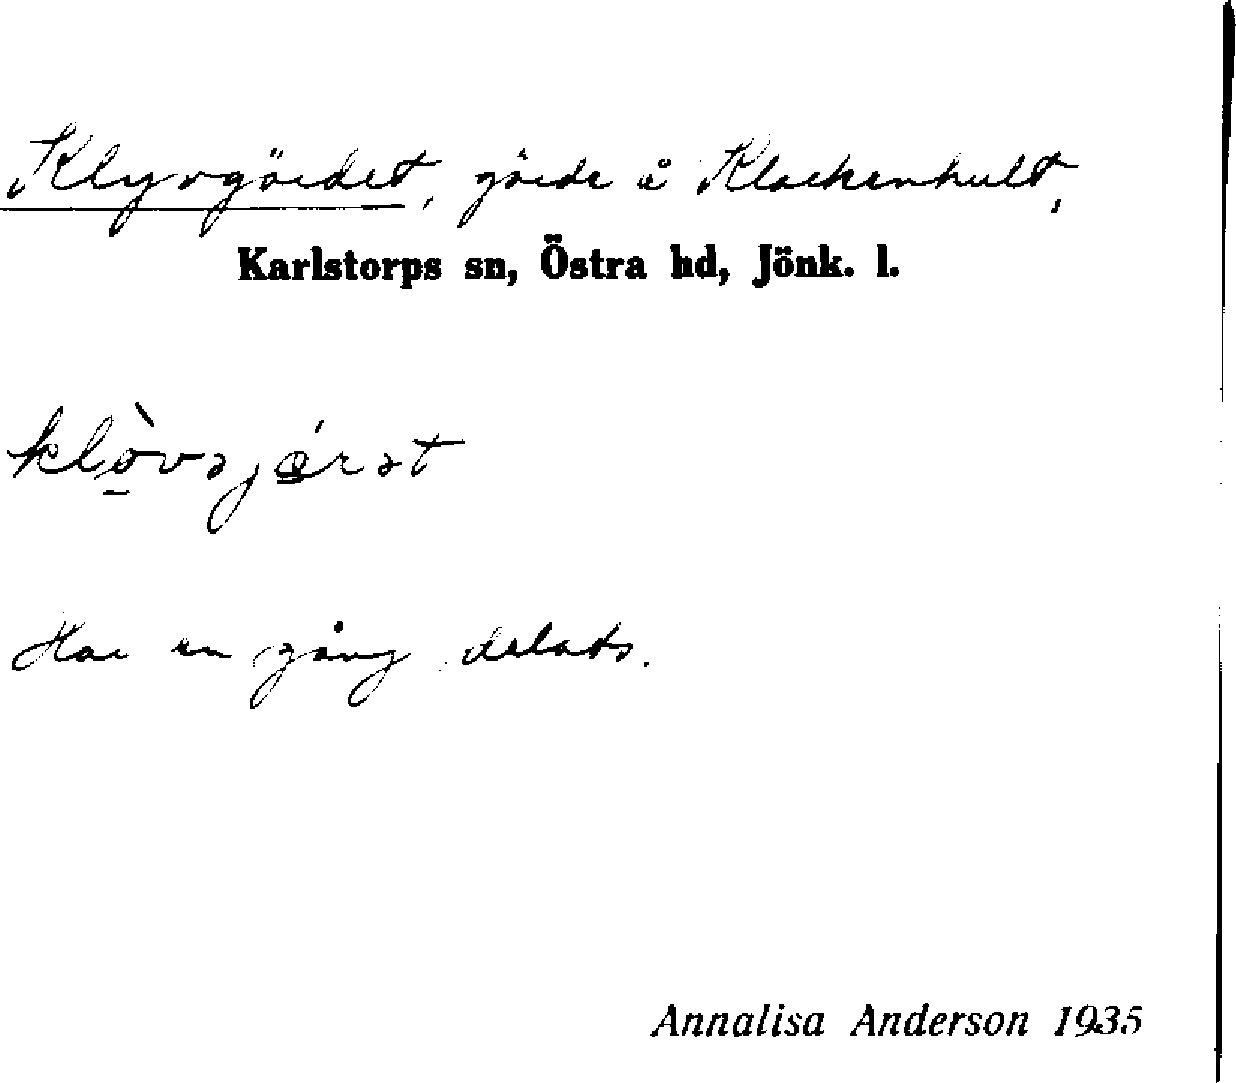 Klyvgärdet, gärde å Klackenhult,
Karlstorps sn, Östra hd, Jönk. l.
Har en gång delats.
Annalisa Anderson 1935